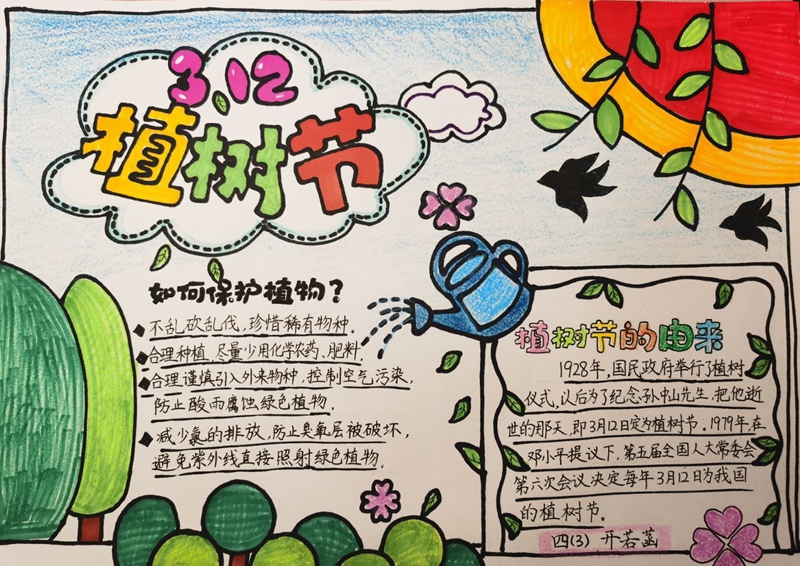 3.12
植树节
如何保护植物？
不乱砍乱伐，珍惜稀有物种．
合理种植，尽量少用化学农药、肥料．
合理谨慎引入外来物种，控制空气污染，
防止酸雨腐蚀绿色植物．
减少氯的排放，防止臭氧层被破坏，
避免紫外线直接照射绿色植物．
植树节的由来
1928年，国民政府举行了植树
仪式，以后为了纪念孙中山先生，把他逝
世的那天，即3月12日定为植树节．1979年，在
邓小平提议下，第五届全国人大常委会
第六次会议决定每年3月12日为我国
的植树节。
四(3) 开若菡